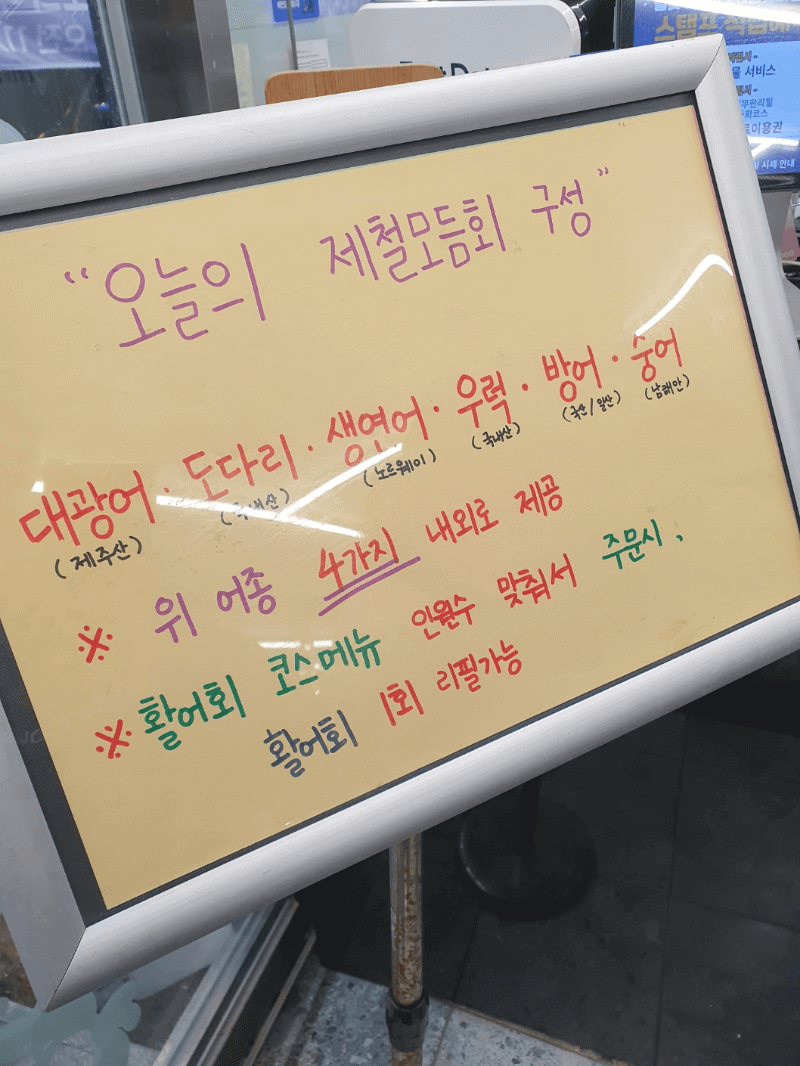 스탬프
서비스
무한리필
코스
이용권
"오늘의 제철모듬회 구성"
대광어 · 도다리 · 생연어 · 우럭 · 방어 · 숭어
(제주산) (국내산) (노르웨이) (국내산) (국산/일산) (남해안)
※ 위 어종 4가지 내외로 제공
※ 활어회 코스메뉴 인원수 맞춰서 주문시,
활어회 1회 리필가능